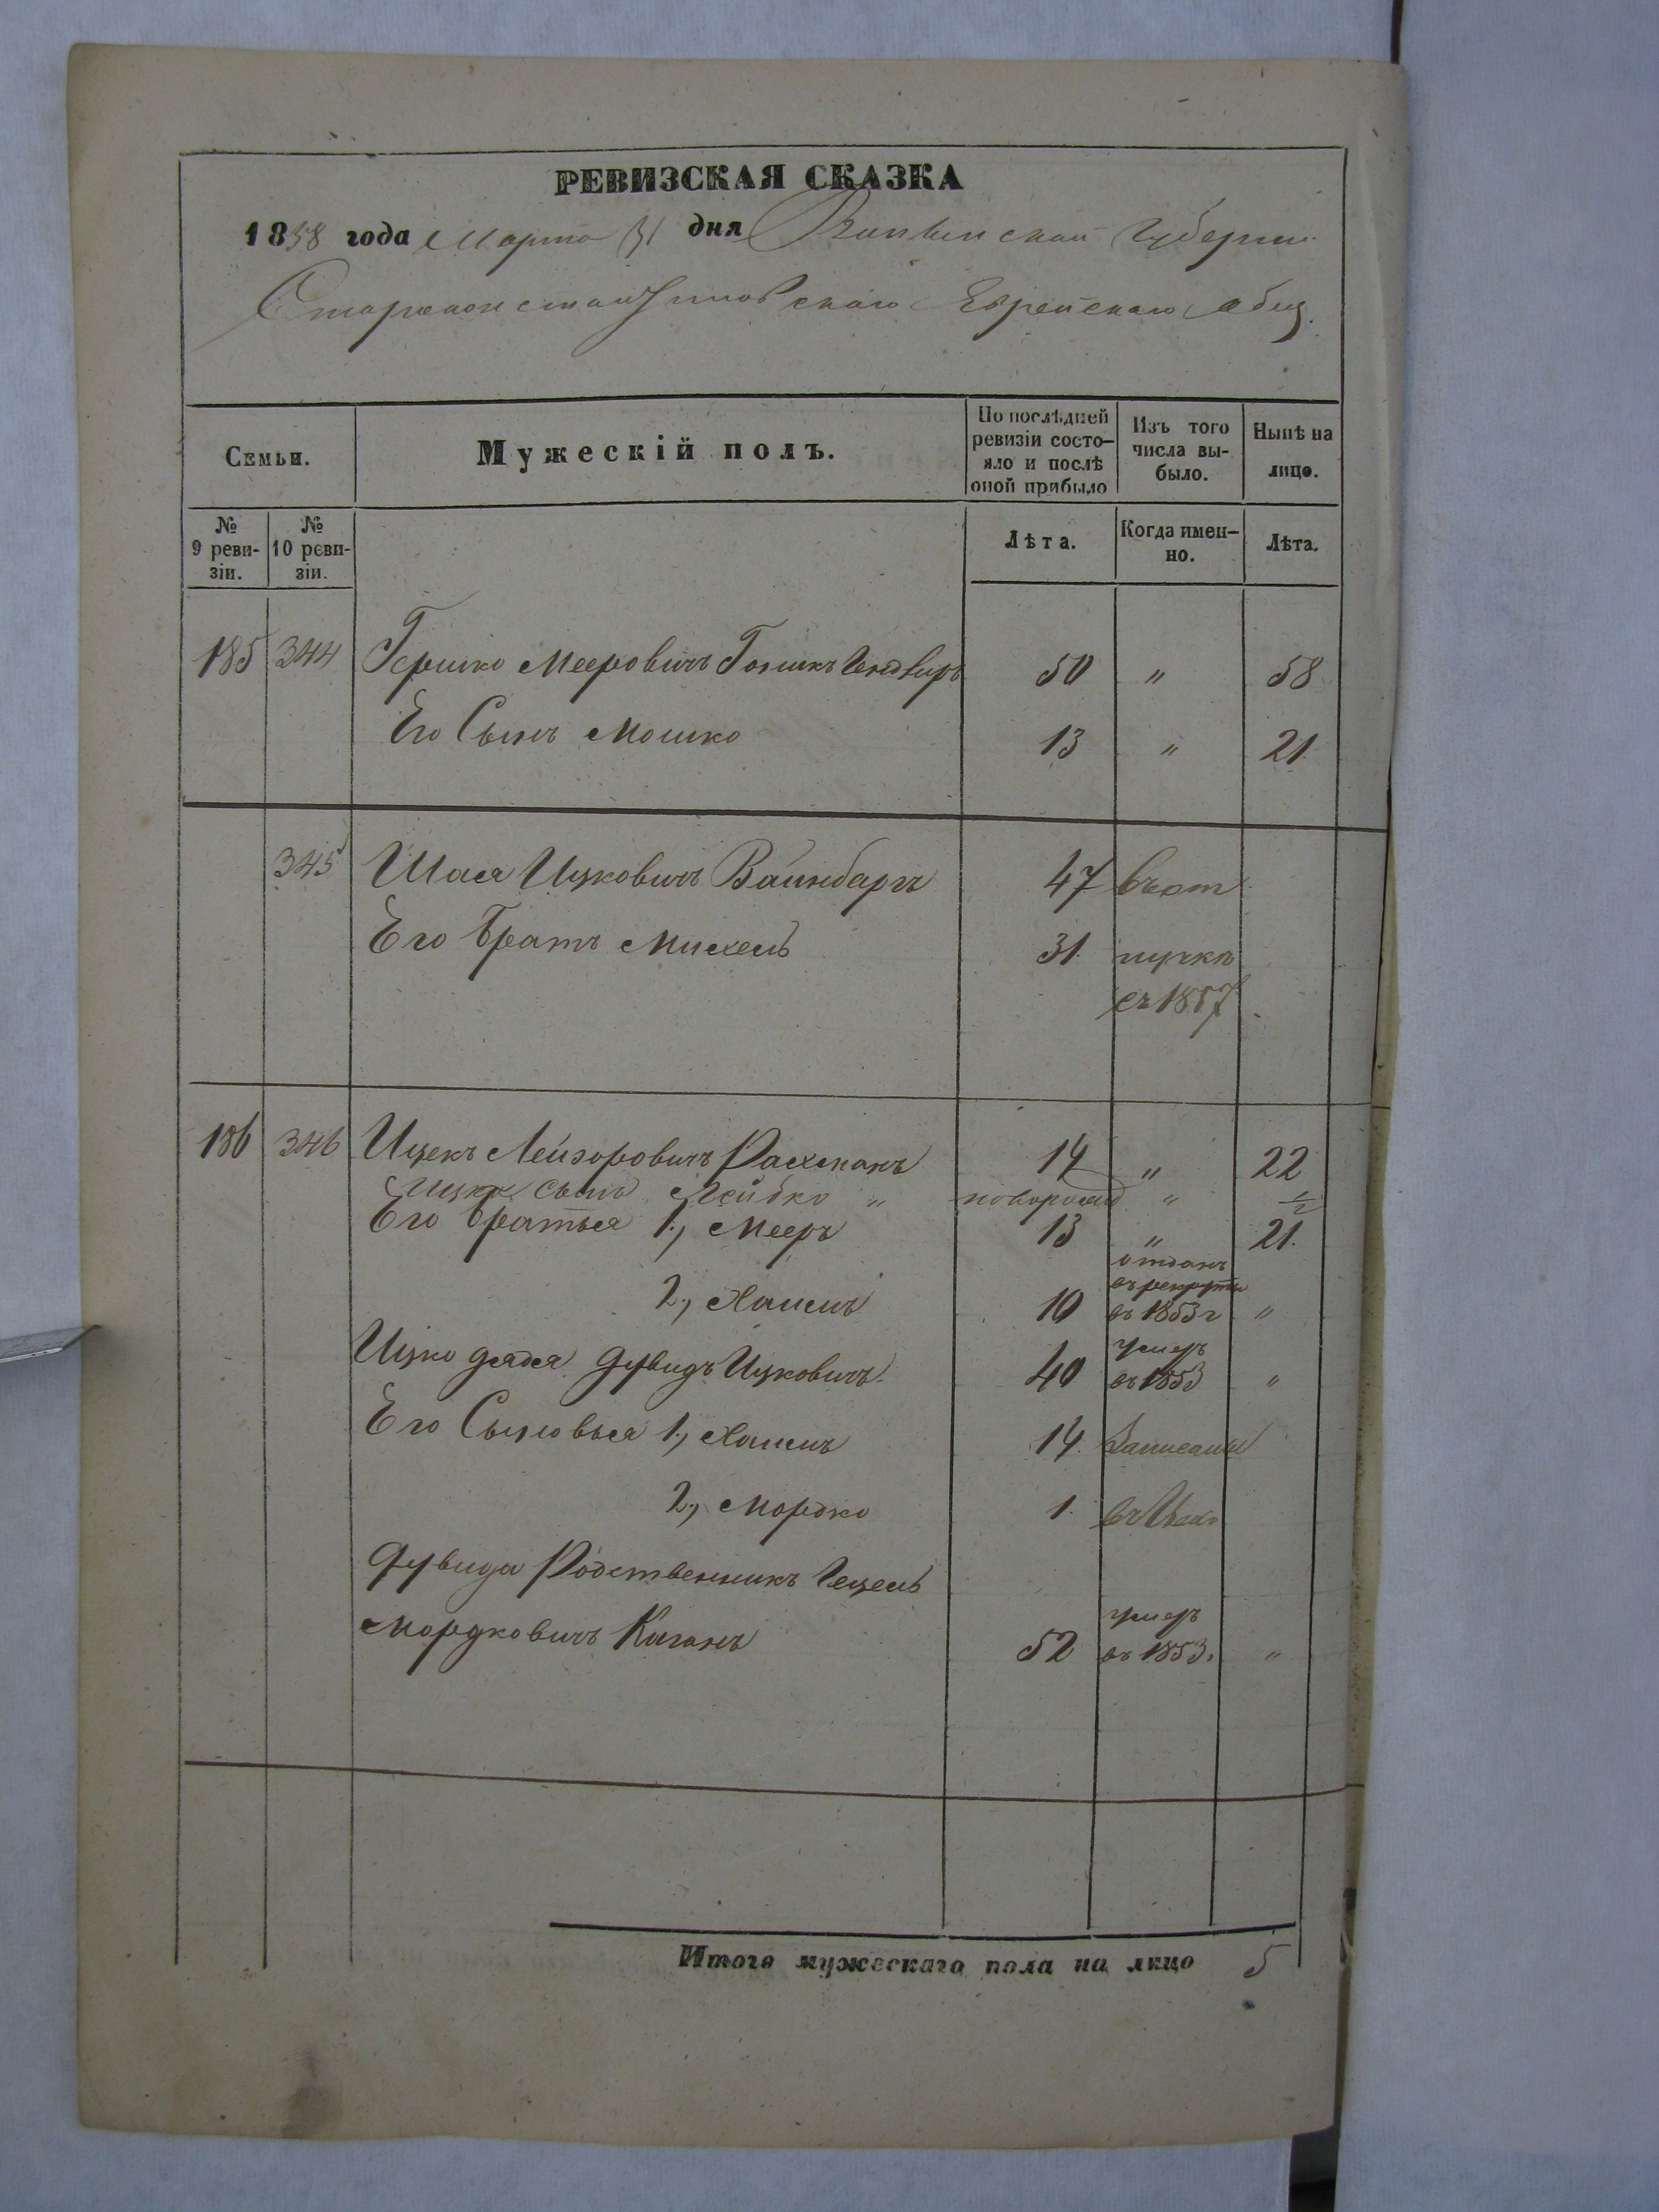 РЕВИЗСКАЯ СКАЗКА
1858 года Марта 31 дня Волынской Губернии
Староконстантиновскаго Еврейскаго Общ.
Семьи.
Мужескій полъ.
По послѣдней ревизіи состояло и послѣ оной прибыло
Изъ того числа выбыло.
Нынѣ на лицо.
№ 9 ревизіи.
№ 10 ревизіи.
Лѣта.
Когда именно.
Лѣта.
185 344 Гершко Мееровичъ 50 " 58
Его Сынъ Мошко 13 " 21
345 Шая Ицковичъ Вайнбаргъ 47
Его Братъ Михель 31.
съ 1857
186 346 Ицекъ Лейзоровичъ Расхманъ 14 " 22
Ицка сынъ Лейбко " новорожд "
Его Братья 1., Мееръ 13 " 21.
2., Хаимъ 10 отданъ въ рекруты въ 1853 г "
Ицко дядя Дувидъ Ицковичъ 40 умеръ въ 1853 "
Его Сыновья 1., Хаимъ 14. Записаны "
2., Мордко 1.
Дувида Родственникъ Гецель
Мордковичъ Каганъ 52 умеръ въ 1853. "
Итого мужескаго пола на лицо 5